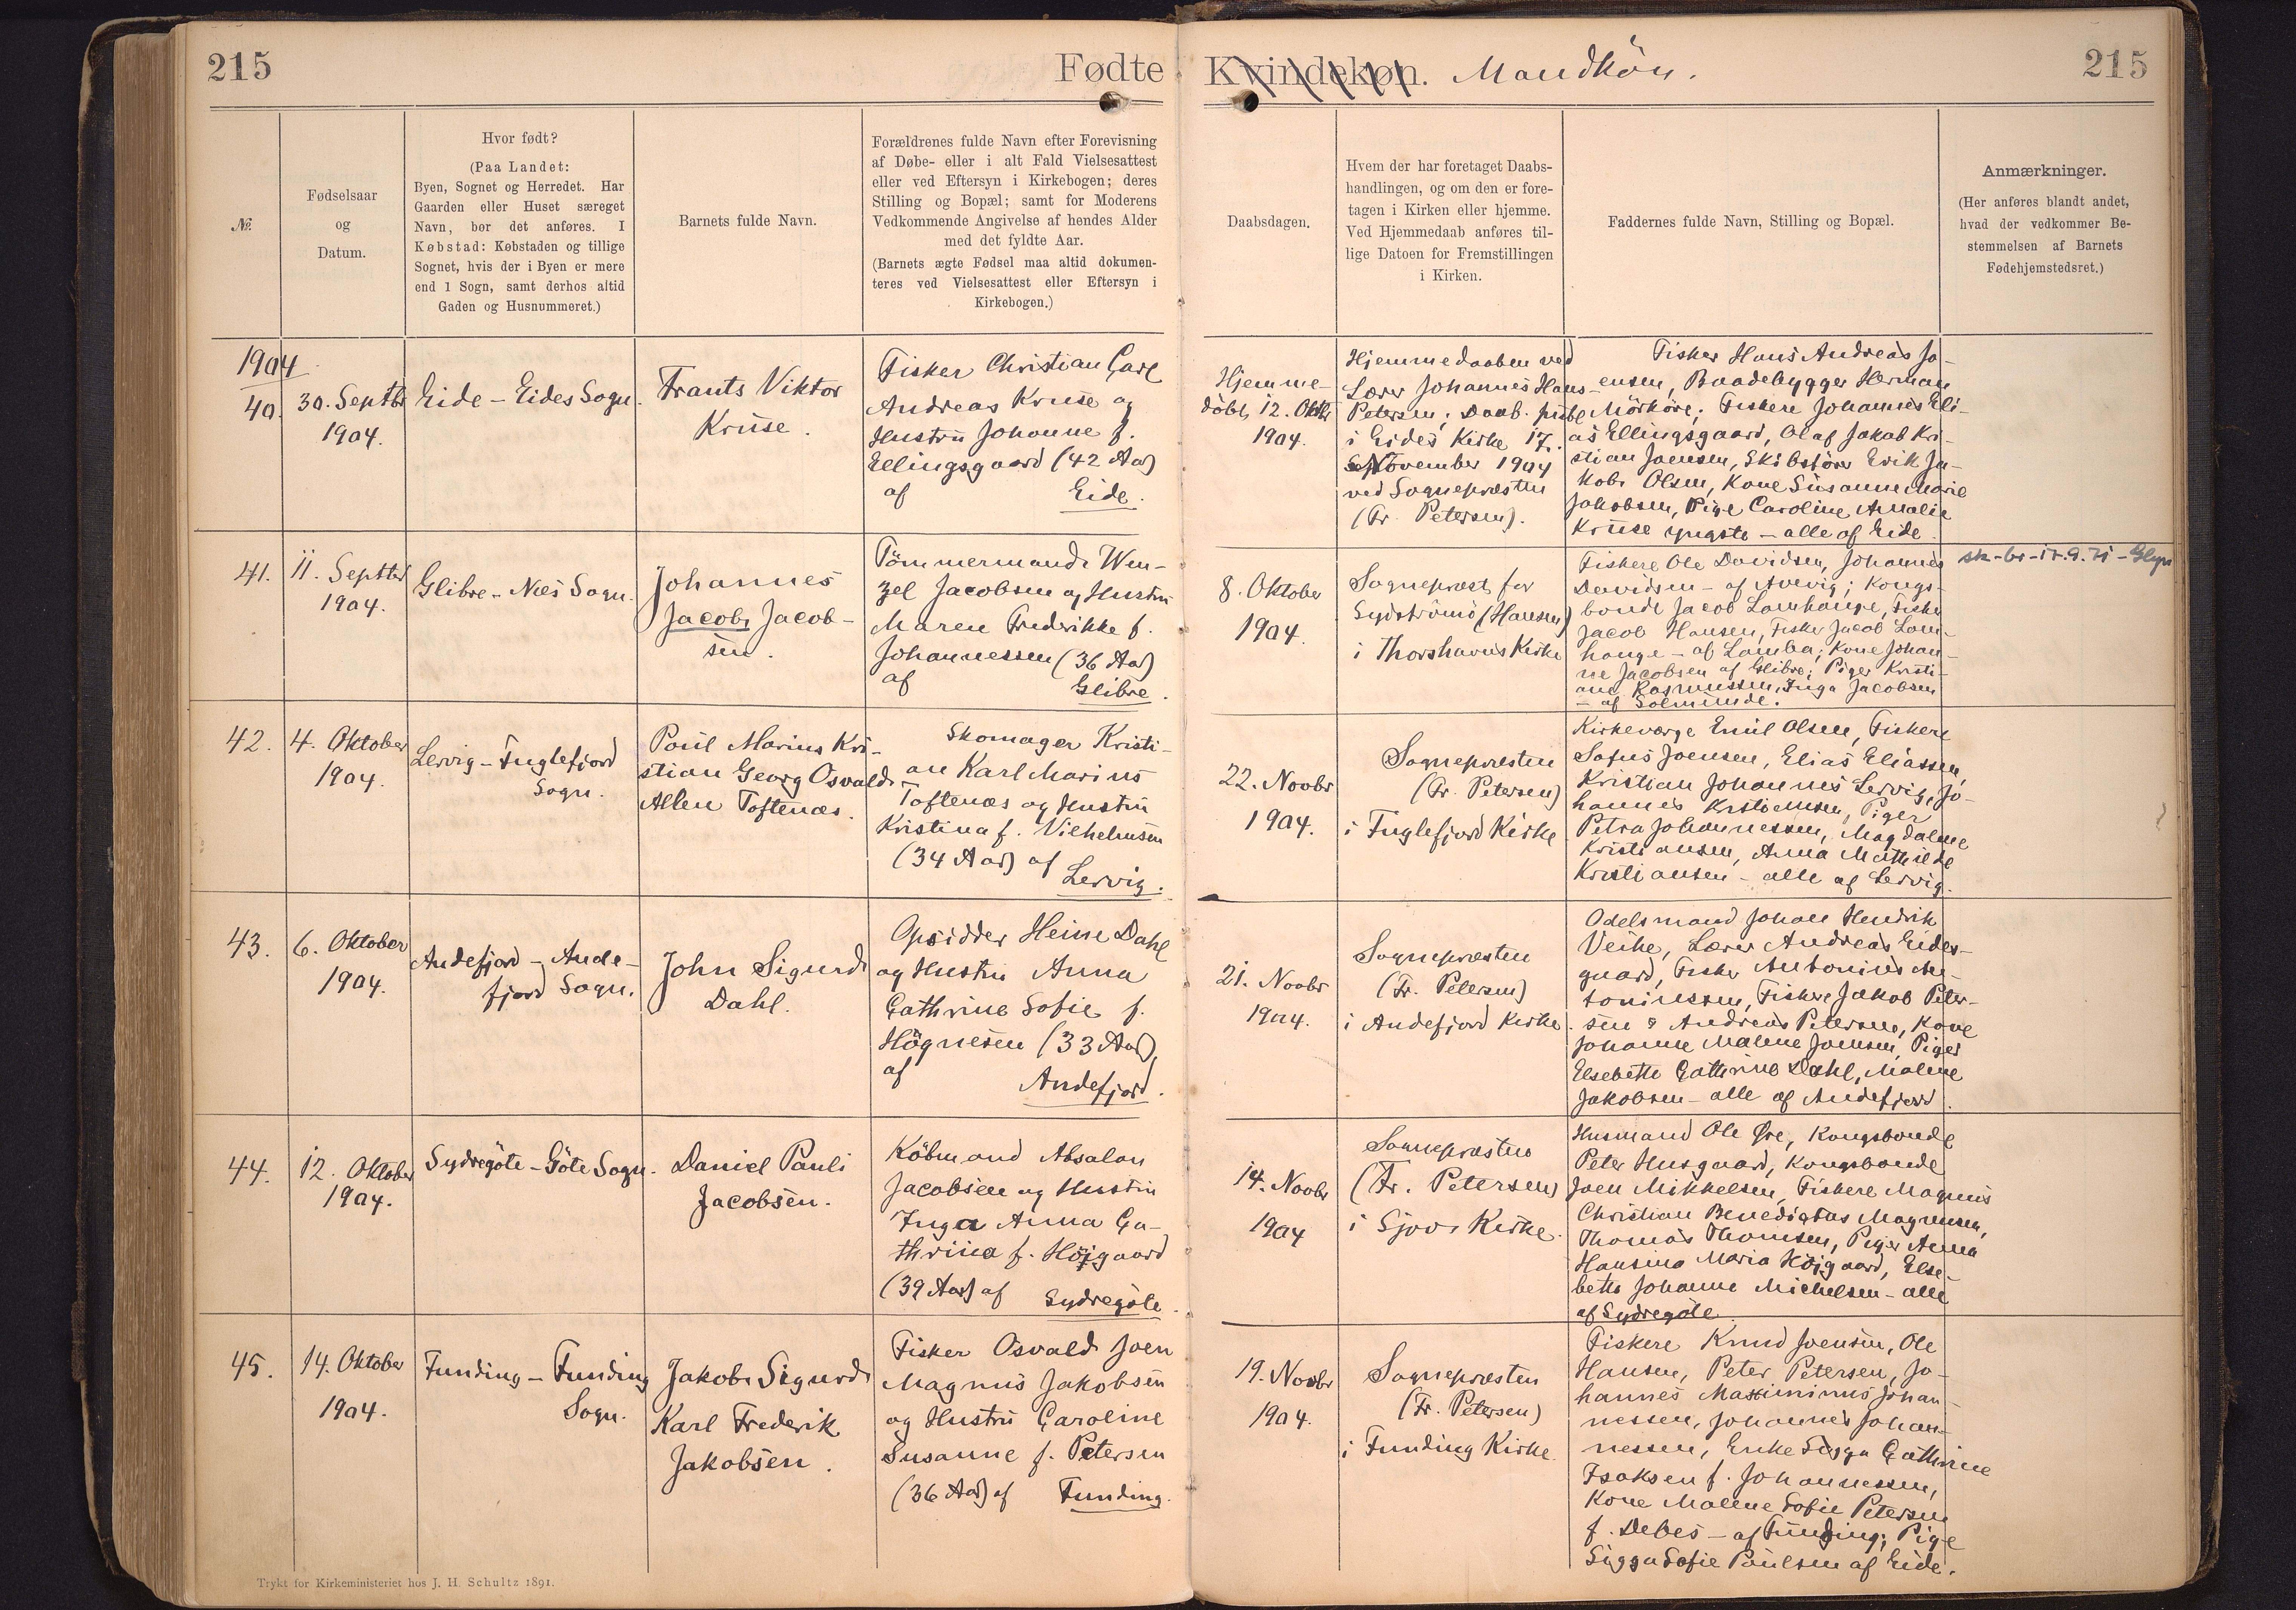 215
Fødte
Kvindekøn. Mandkön.
215
№
Fødselsaar
og
Datum.
Hvor født?
(Paa Landet:
Byen, Sognet og Herredet. Har
Gaarden eller Huset særeget
Navn, bør det anføres. I
Købstad: Købstaden og tillige
Sognet, hvis der i Byen er mere
end 1 Sogn, samt derhos altid
Gaden og Husnummeret.)
Barnets fulde Navn.
Forældrenes fulde Navn efter Forevisning
af Døbe- eller i alt Fald Vielsesattest
eller ved Eftersyn i Kirkebogen; deres
Stilling og Bopæl; samt for Moderens
Vedkommende Angivelse af hendes Alder
med det fyldte Aar.
(Barnets ægte Fødsel maa altid dokumen-
teres ved Vielsesattest eller Eftersyn i
Kirkebogen.)
Daabsdagen.
Hvem der har foretaget Daabs-
handlingen, og om den er fore-
tagen i Kirken eller hjemme.
Ved Hjemmedaab anføres til-
lige Datoen for Fremstillingen
i Kirken.
Faddernes fulde Navn, Stilling og Bopæl.
Anmærkninger.
(Her anføres blandt andet,
hvad der vedkommer Be-
stemmelsen af Barnets
Fødehjemstedsret.)
1904
40.
30. Septbr
1904.
Eide - Eides Sogn.
Frants Viktor
Kruse.
Fisker Christian Carl
Andreas Kruse og
Hustru Johanne f.
Ellingsgaard (42 Aar)
af Eide.
Hjemme-
döbt, 12. Oktbr
1904.
Hjemmedaaben ved
Lærer Johannes Hans
Petersen; Daab. publ
i Eides Kirke 17.
November 1904
ved Sognepræsten
(Fr. Petersen).
Fisker Hans Andreas Jo-
ensen, Baadebygger Herman
Mörköre; Fiskere Johannes Eli-
as Ellingsgaard, Olaf Jakob Kri-
stian Joensen, Skibsförer Erik Ja-
kob Olsen, Kone Susanne Marie
Jakobsen, Pige Caroline Amalie
Kruse yngste - alle af Eide.
41.
11. Septbr
1904.
Glibre - Næs Sogn.
Johannes
Jacob Jacob-
sen.
Tömmermand Wen-
zel Jacobsen og Hustru
Maren Frederikke f.
Johannessen (36 Aar)
af Glibre.
8. Oktober
1904.
Sognepræst for
Sydströmö (Hansen)
i Thorshavns Kirke
Fiskere Ole Davidsen, Johannes
Davidsen - af Avevig; Kongs-
bonde Jacob Lamhauge, Fisker
Jacob Hansen, Fisker Jacob Lam-
hauge - af Lamba; Kone Johan-
ne Jacobsen af Glibre; Piger Kristi-
ane Rasmussen, Inga Jacobsen
- af Solmunde.
42.
4. Oktober
1904.
Lervig - Fuglefjord
Sogn.
Poul Marius Kri-
stian Georg Osvald
Allen Toftenæs.
Skomager Kristi-
an Karl Marius
Toftenæs og Hustru
Kristina f. Vilhelmsen
(34 Aar) af
Lervig.
22. Novbr
1904.
Sognepræsten
(Fr. Petersen)
i Fuglefjord Kirke
Kirkeværge Emil Olsen, Fiskere
Sofus Joensen, Elias Eliassen,
Kristian Johannes Lervig, Jo-
hannes Kristiansen, Piger
Petra Johannessen, Magdalene
Kristiansen, Anna Mathilde
Kristiansen - alle af Lervig.
43.
6. Oktober
1904.
Andefjord - Ande-
fjord Sogn.
John Sigurd
Dahl.
Opsidder Heine Dahl
og Hustru Anna
Cathrine Sofie f.
Högnesen (33 Aar),
af Andefjord.
21. Novbr
1904.
Sognepræsten
(Fr. Petersen)
i Andefjord Kirke.
Odelsmand Johan Hendrik
Veihe, Lærer Andreas Eides-
gaard, Fisker Antonius An-
toniussen, Fiskere Jakob Peter-
sen & Andreas Petersen, Kone
Johanne Malene Joensen, Piger
Elsebeth Cathrine Dahl, Malene
Jakobsen - alle af Andefjord.
44.
12. Oktober
1904.
Sydregöte - Göte Sogn.
Daniel Pauli
Jacobsen.
Köbmand Absalon
Jacobsen og Hustru
Inga Anna Ca-
thrina f. Höjgaard
(39 Aar) af Sydregöte.
14. Novbr
1904
Sognepræsten
(Fr. Petersen)
i Sjovs Kirke.
Husmand Ole Øre, Kongsbonde
Peter Husgaard, Kongsbonde
Joen Mikkelsen, Fiskere Magnus
Christian Benedictus Magnusen,
Thomas Thomsen, Piger Anna
Hansina Maria Höjgaard, Else-
beth Johanne Michelsen - alle
af Sydregöte
45.
14. Oktober
1904.
Funding - Funding
Sogn.
Jakob Sigurd
Karl Frederik
Jakobsen.
Fisker Osvald Joen
Magnus Jakobsen
og Hustru Caroline
Susanne f. Petersen
(36 Aar) af Funding.
19. Novbr
1904.
Sognepræsten
(Fr. Petersen)
i Funding Kirke.
Fiskere Knud Joensen, Ole
Hansen, Peter Petersen, Jo-
hannes Maximinus Johan-
nessen, Johannes Johan-
nessen, Enke Sigga Cathrine
Isaksen f. Johannessen,
Kone Malene Sofie Petersen
f. Debes - af Funding; Pige
Sigga Sofie Poulsen af Eide.
Trykt for Kirkeministeriet hos J. H. Schultz 1891.